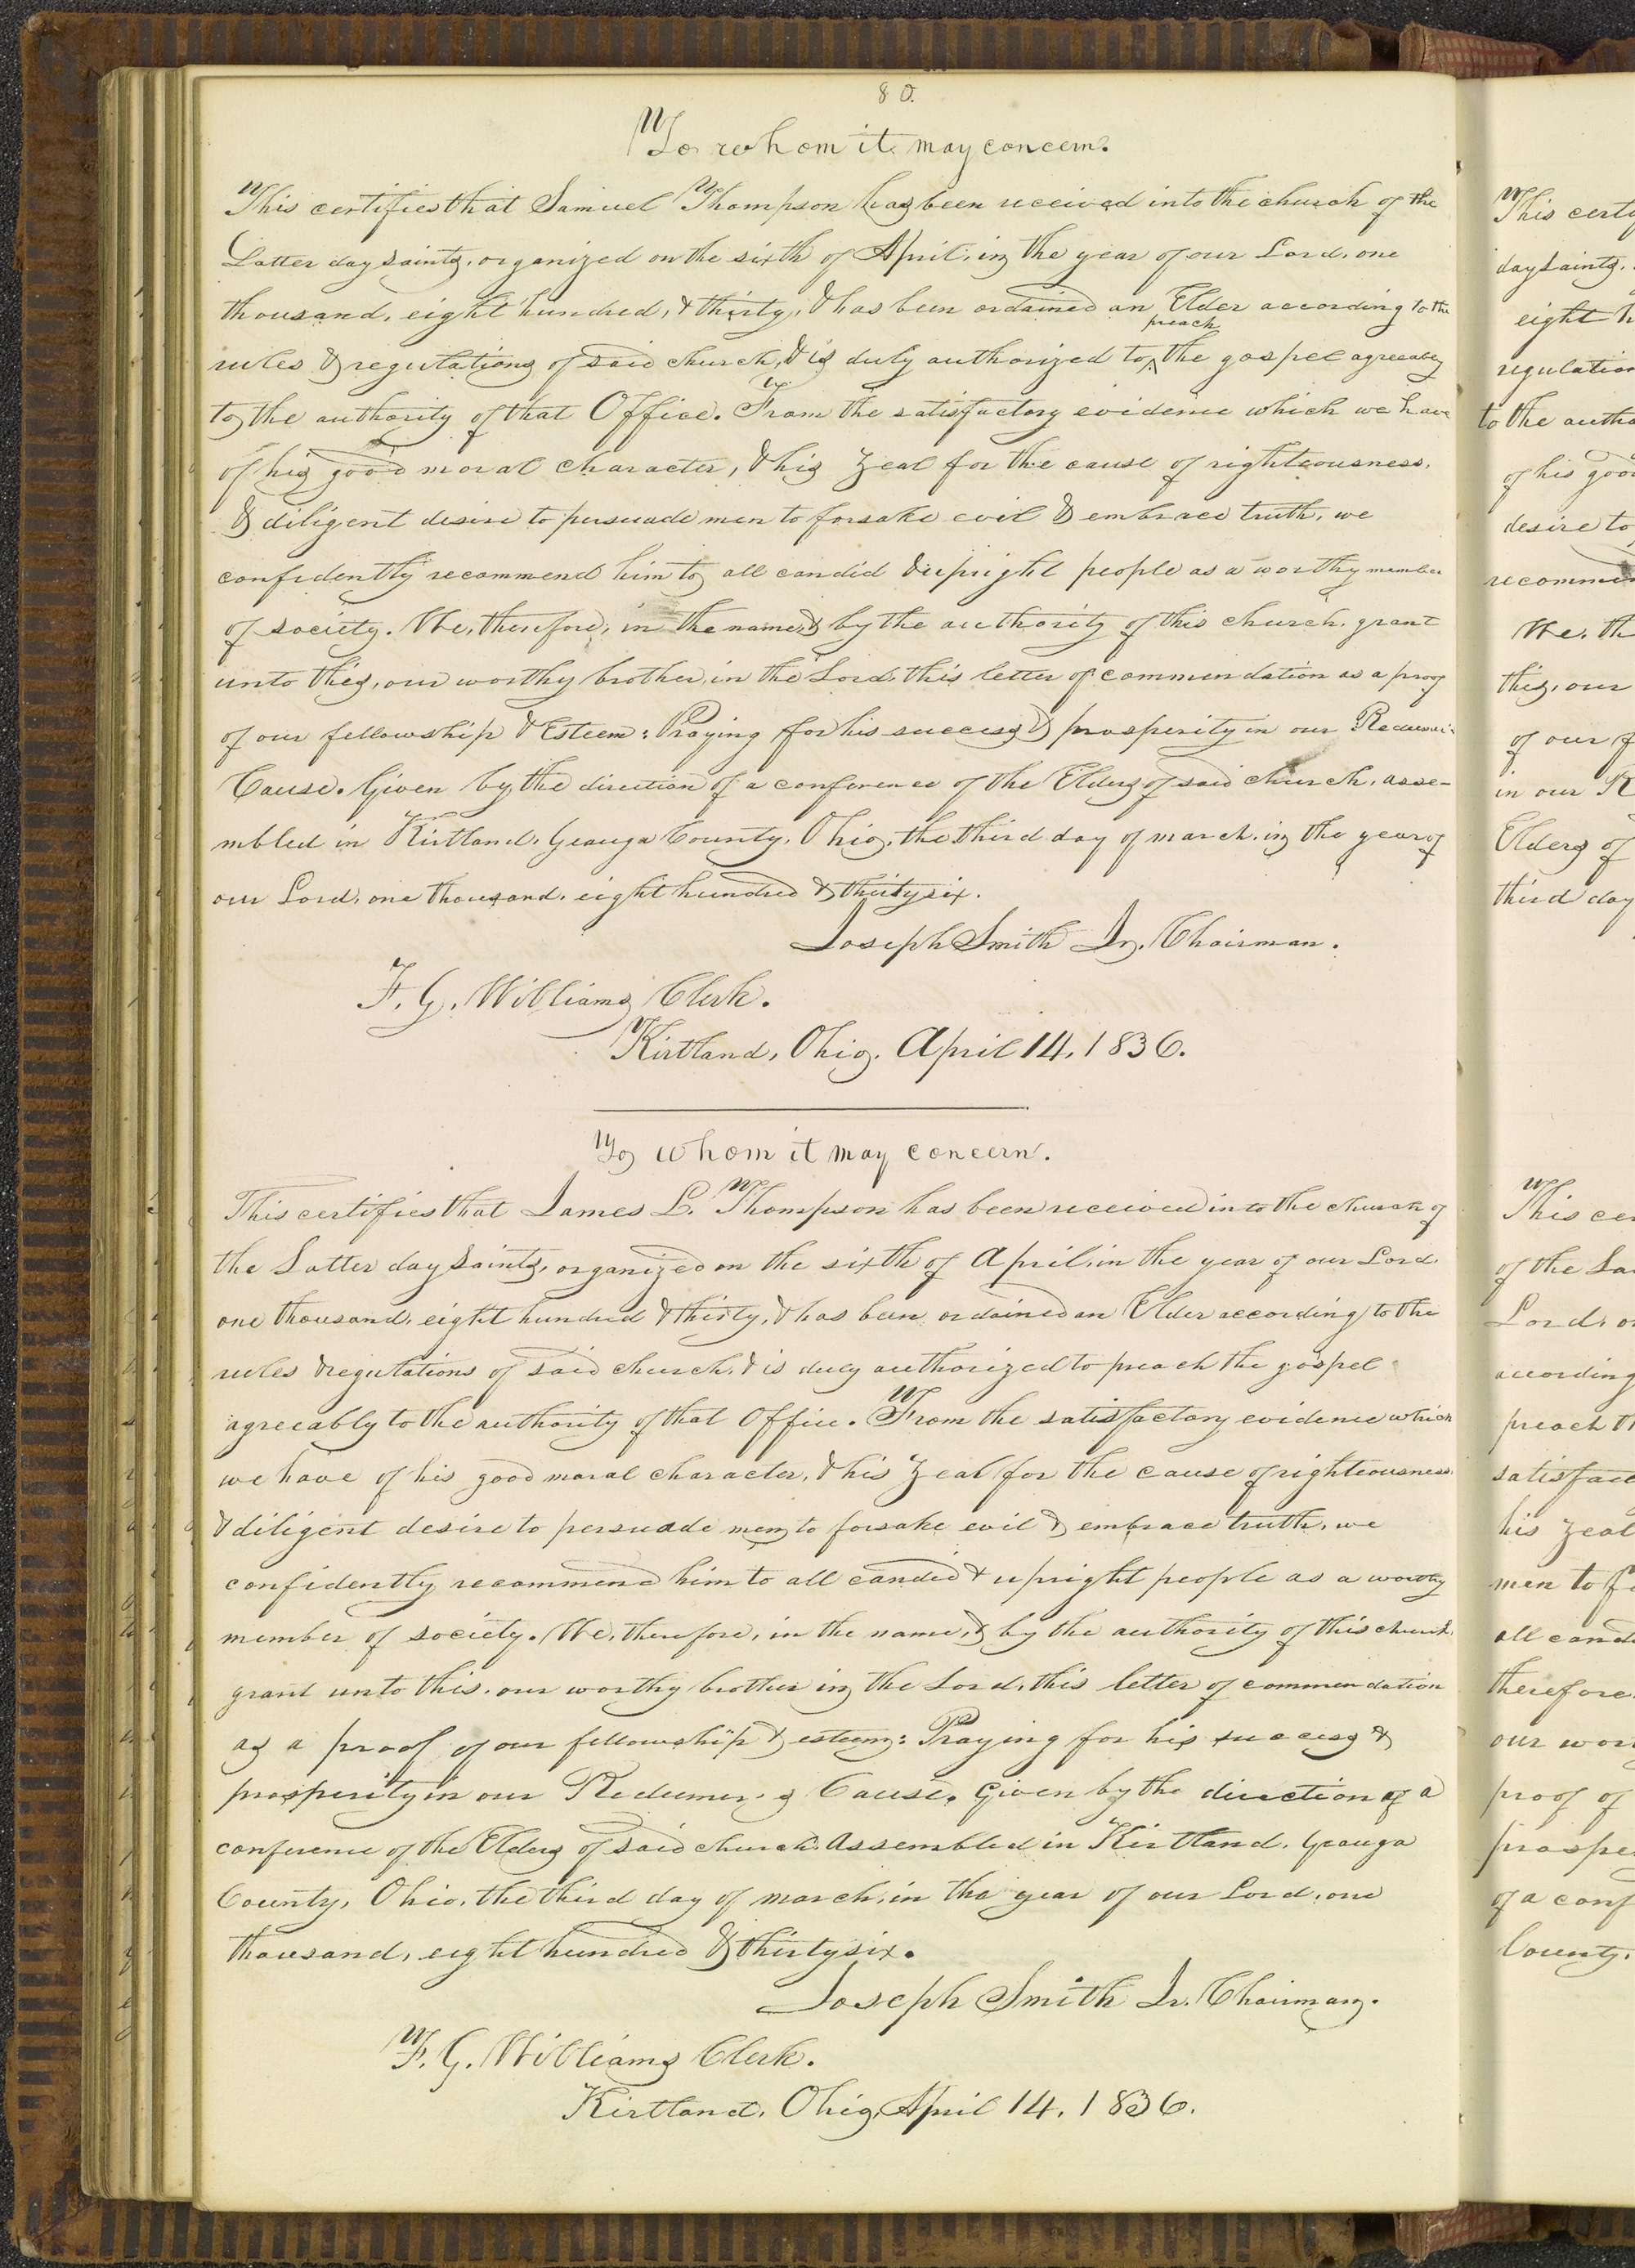 80.
To whom it may concern.
This certifies that Samuel Thompson has been received into the church of the
Latter day saints, organized on the sixth of April, in the year of our Lord, one
thousand, eight hundred, & thirty, & has been ordained an Elder according to the
preach
rules & regulations of said church, & is duly authorized to ^ the gospel agreeably
to the authority of that Office. From the satisfactory evidence which we have
of his good moral character, & his zeal for the cause of righteousness,
& diligent desire to persuade men to forsake evil & embrace truth, we
confidently recommend him to all candid & upright people as a worthy member
of society. We, therefore, in the name, & by the authority of this church, grant
unto this, our worthy brother, in the Lord, this letter of commendation as a proof
of our fellowship & Esteem: Praying for his success & prosperity in our
Cause. Given by the direction of a conference of the Elders of said church, asse-
mbled in Kirtland, Geauga County, Ohio, the third day of march, in the year of
our Lord, one thousand, eight hundred & thirty six.
Joseph Smith Jr. Chairman.
F. G. Williams Clerk.
Kirtland, Ohio, April 14, 1836.
To whom it may concern.
This certifies that James L. Thompson has been received into the church of
the Latter day saints, organized on the sixth of April, in the year of our Lord,
one thousand, eight hundred & thirty, & has been ordained an Elder according to the
rules & regulations of said church, & is duly authorized to preach the gospel
agreeably to the authority of that Office. From the satisfactory evidence which
we have of his good moral character, & his zeal for the cause of righteousness,
& diligent desire to persuade men to forsake evil & embrace truth, we
confidently recommend him to all candid & upright people as a worthy
member of society. We, therefore, in the name, & by the authority of this church,
grant unto this, our worthy brother in the Lord, this letter of commendation
as a proof of our fellowship & esteem: Praying for his success &
prosperity in our Redeemer's Cause. Given by the direction of a
conference of the Elders of said church Assembled in Kirtland, Geauga
County, Ohio, the third day of march, in the year of our Lord, one
thousand, eight hundred & thirty six.
Joseph Smith Jr. Chairman.
F. G. Williams Clerk.
Kirtland, Ohio, April 14, 1836.
This
day saints,
eight
regulation
to the
of his
desire to
We,
this, our
of our
in our
Elders of
third day
This
of the
Lord,
according
preach
his zeal
men to
therefore
our
proof of
of a
County,